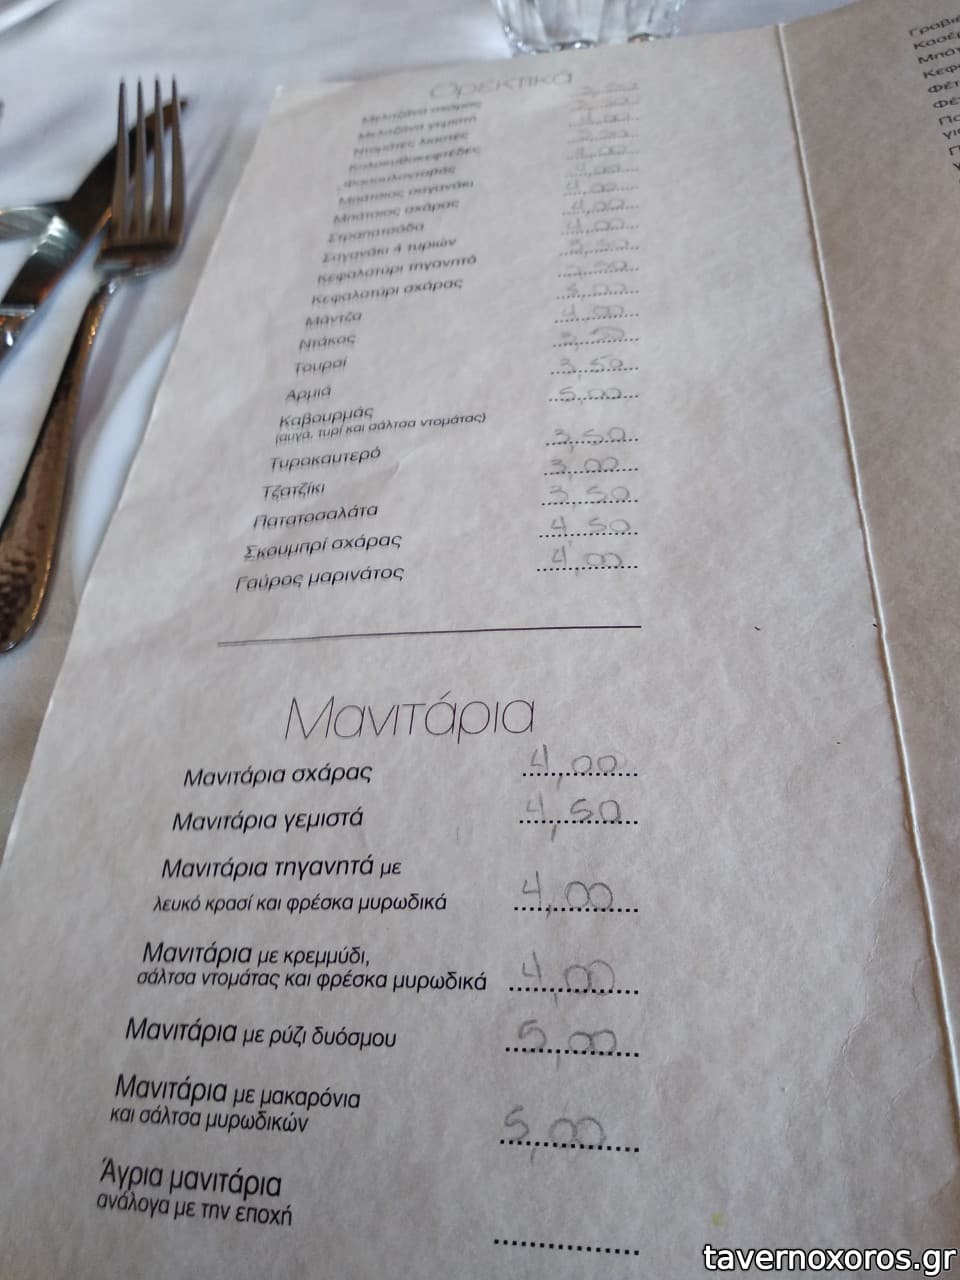 Ορεκτικά
Μελιτζάνα σχάρας
Μελιτζάνα γεμιστή 4,00
Ντομάτες λιαστές
Κολοκυθοκεφτέδες 4,00
Φασουλονταβάς 4,00
Μπάτσος σαγανάκι 4,00
Μπάτσος σχάρας 4,00
Στραπατσάδα 4,00
Σαγανάκι 4 τυριών
Κεφαλοτύρι τηγανητό 3,50
Κεφαλοτύρι σχάρας
Μάντζα 4,00
Ντάκος 3,50
Τουρσί 3,50
Αρμιά 5,00
Καβουρμάς
(αυγά, τυρί και σάλτσα ντομάτας)
Τυροκαυτερό 3,50
Τζατζίκι 3,00
Πατατοσαλάτα 3,50
Σκουμπρί σχάρας 4,50
Γαύρος μαρινάτος 4,00
Μανιτάρια
Μανιτάρια σχάρας 4,00
Μανιτάρια γεμιστά 4,50
Μανιτάρια τηγανητά με
λευκό κρασί και φρέσκα μυρωδικά 4,00
Μανιτάρια με κρεμμύδι,
σάλτσα ντομάτας και φρέσκα μυρωδικά 4,00
Μανιτάρια με ρύζι δυόσμου 5,00
Μανιτάρια με μακαρόνια
και σάλτσα μυρωδικών 5,00
Άγρια μανιτάρια
ανάλογα με την εποχή
tavernoxoros.gr